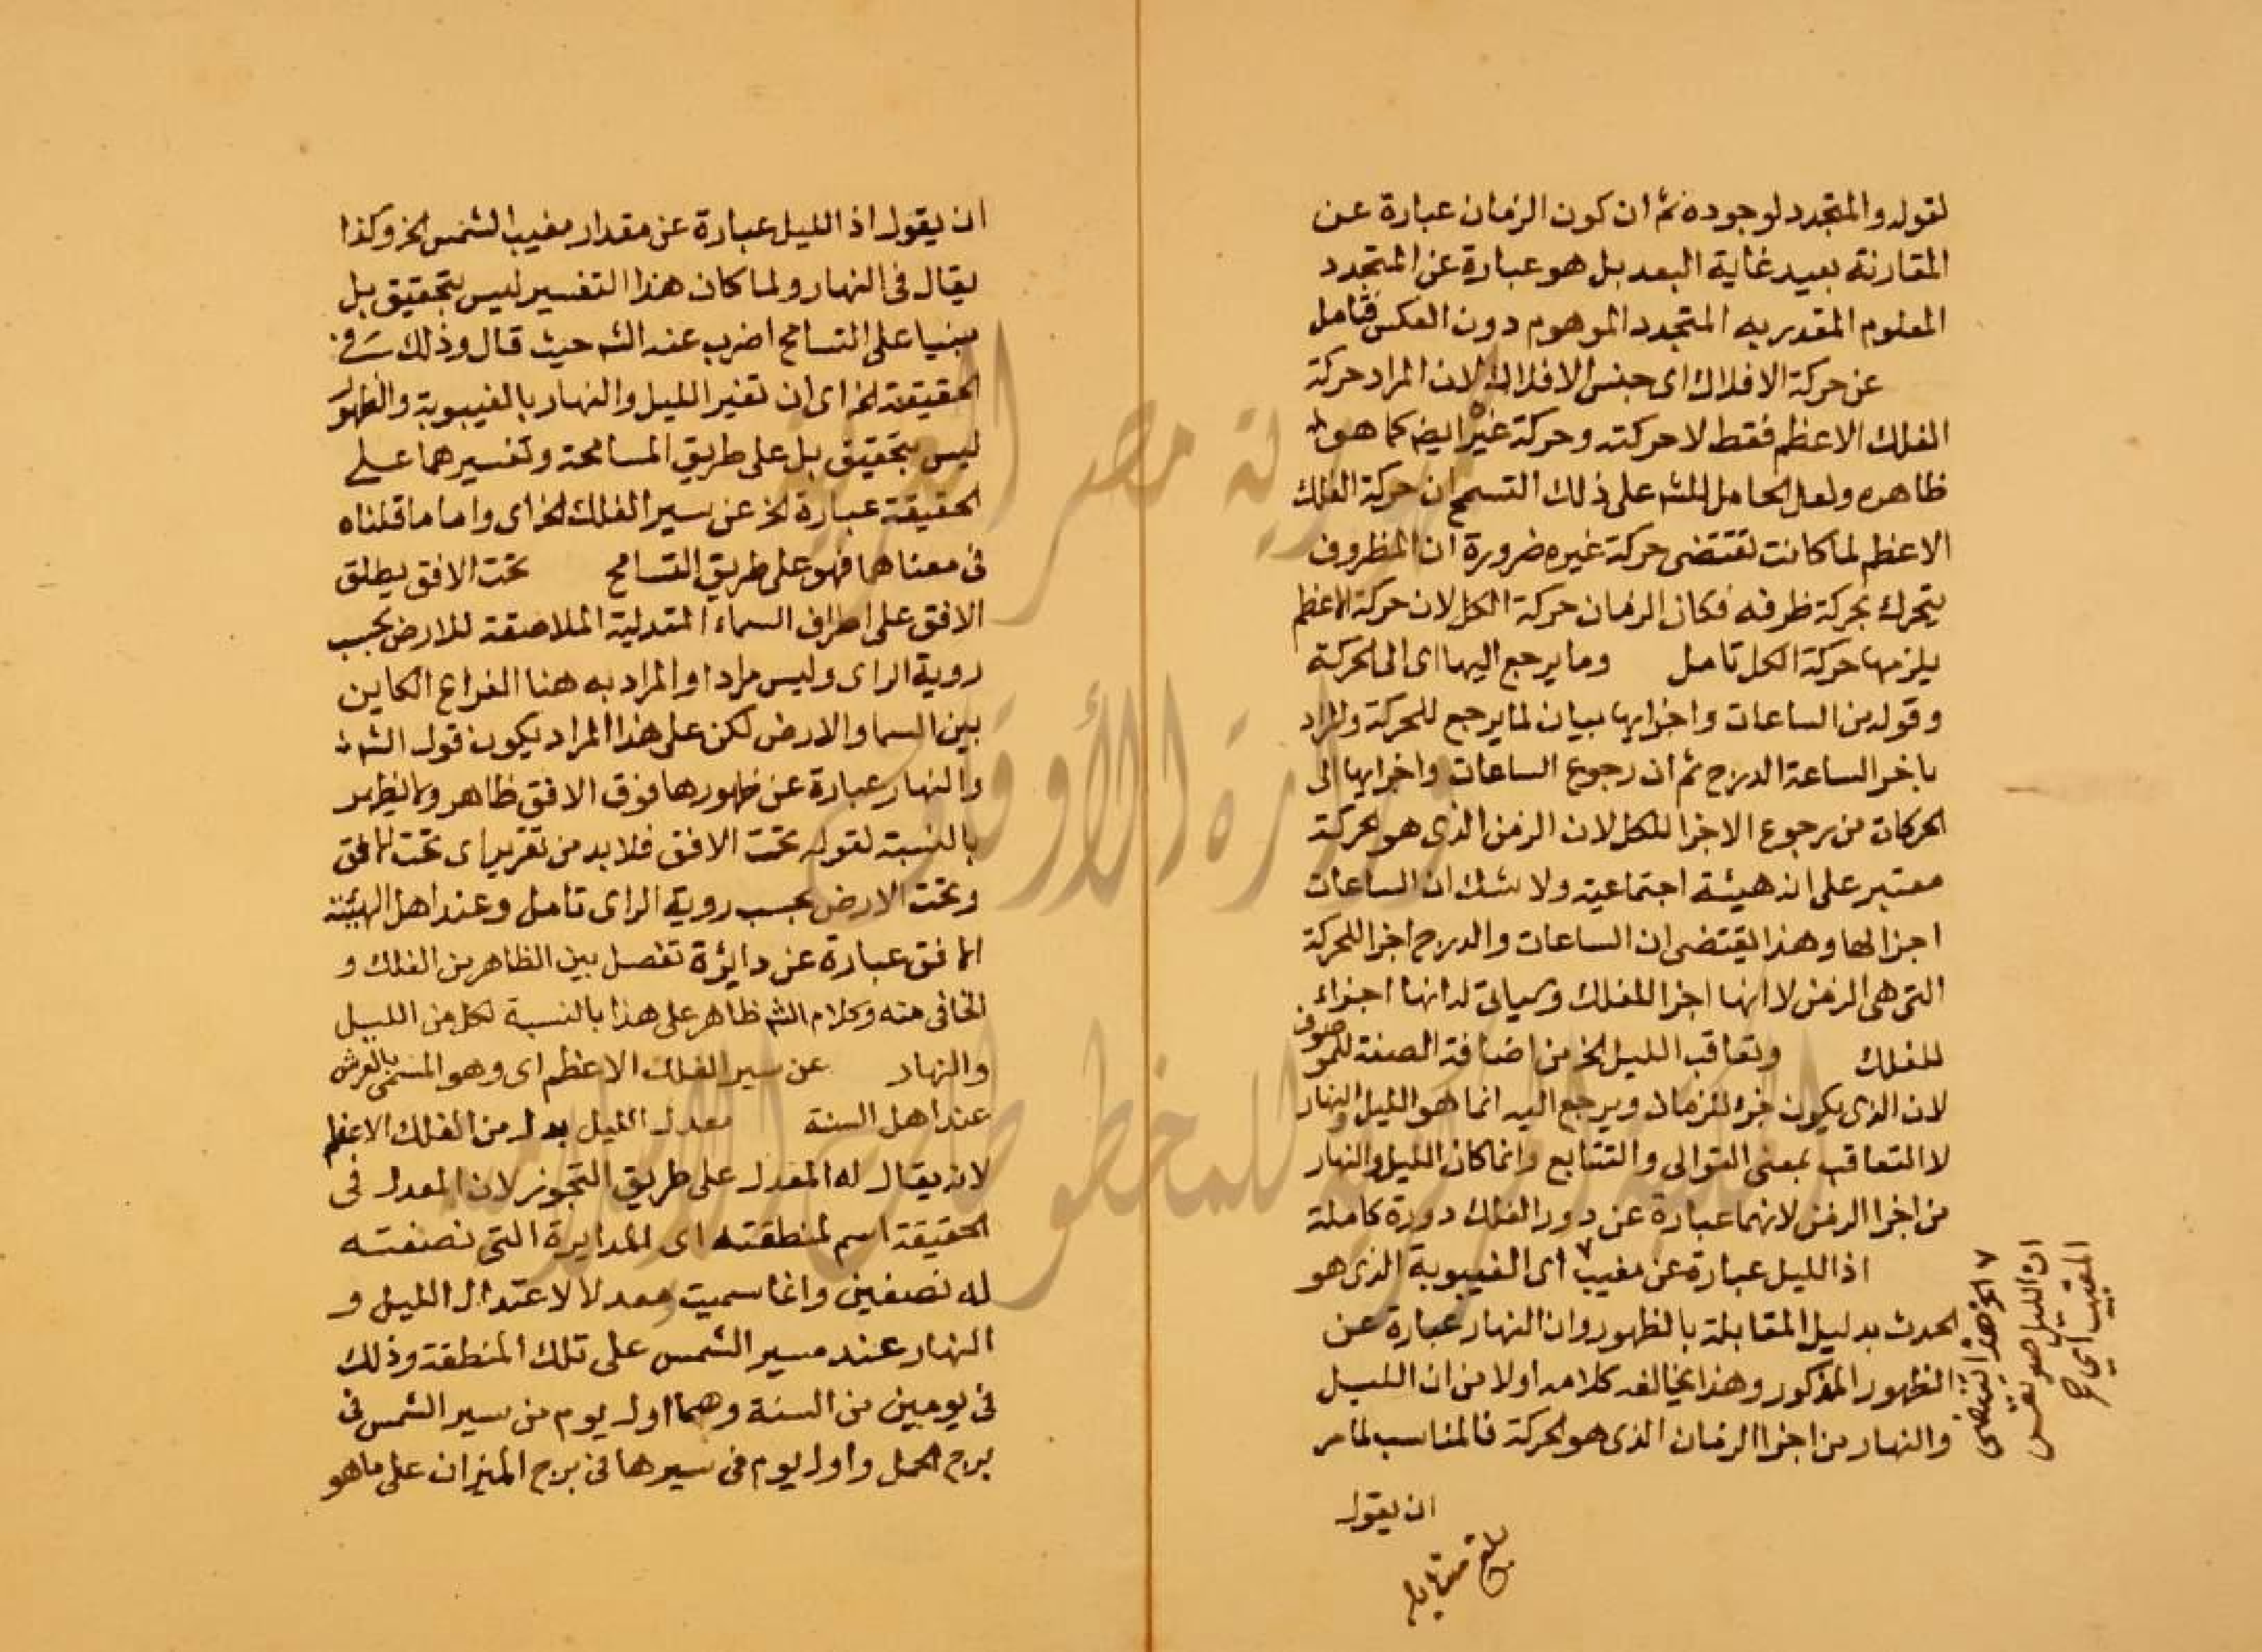 لقوله والمتجدد لوجوده ثم ان كون الزمان عبارة عن
المقارنة بعيد غاية البعد بل هو عبارة عن المتجدد
المعلوم المقدر به المتجدد الموهوم دون العكس فتامل
عن حركة الافلاك اى جنس الافلاك لان المراد حركة
الفلك الاعظم فقط لا حركته وحركة غيره ايضا كما هو
ظاهره ولعل الحامل للشه على ذلك التسمح ان حركة الفلك
الاعظم لما كانت تقتضى حركة غيره ضرورة ان المظروف
يتحرك بحركة ظرفه فكان الزمان حركة الكل لان حركة الاعظم
يلزمها حركة الكل تامل وما يرجع اليها اى الى الحركة
وقوله من الساعات واجزايها بيان لما يرجع للحركة والمراد
باجزا الساعة الدرج ثم ان رجوع الساعات واجزايها الى
الحركات من رجوع الاجزا للكل لان الزمن الذى هو الحركة
معتبر على انه هيئة اجتماعية ولا شك ان الساعات
اجزا لها وهذا يقتضى ان الساعات والدرج اجزا للحركة
التى هى الزمن لا انها اجزا للفلك وسياتى له انها اجزاء
للفلك وتعاقب الليل الخ من اضافة الصفة للموصوف
لان الذى يكون جزء للزمان ويرجع اليه انما هو الليل والنهار
لا التعاقب بمعنى التوالى والتتابع وانما كان الليل والنهار
من اجزا الزمن لانهما عبارة عن دور الفلك دورة كاملة
اذ الليل عبارة عن مغيب ٧ اى الغيبوبة الذى هو
الحدث بدليل المقابلة بالظهور وان النهار عبارة عن
الظهور المذكور وهذا يخالف كلامه اولا من ان الليل
والنهار من اجزا الزمان الذى هو الحركة فالمناسب لما مر
ان يقول
بلغ مقابلة
٧ الخ هذا يقتضى
ان الليل هو نفس
المغيب اى
ان يقول اذ الليل عبارة عن مقدار مغيب الشمس الخ وكذا
يقال فى النهار ولما كان هذا التفسير ليس بتحقيق بل
مبنيا على التسامح اضرب عنه الشه حيث قال وذلك فى
الحقيقة الخ اى ان تفسير الليل والنهار بالغيبوبة والظهور
ليس بتحقيق بل على طريق المسامحة وتفسيرهما على
الحقيقة عبارة الخ عن سير الفلك الخ اى واما ما قلناه
فى معناهما فهو على طريق التسامح تحت الافق يطلق
الافق على اطراف السماء المتدلية الملاصقة للارض بحسب
روية الراى وليس مرادا والمراد به هنا الفراغ الكاين
بين السما والارض لكن على هذا المراد يكون قول الشه
والنهار عبارة عن ظهورها فوق الافق ظاهر ولا يظهر
بالنسبة لقوله تحت الافق فلا بد من تقرير اى تحت الافق
وتحت الارض بحسب روية الراى تامل وعند اهل الهيئة
الافق عبارة عن دائرة تفصل بين الظاهر من الفلك و
الخافى منه وكلام الشه ظاهر على هذا بالنسبة لكل من الليل
والنهار عن سير الفلك الاعظم اى وهو المسمى بالعرش
عند اهل السنة معدل الليل بدل من الفلك الاعظم
لانه يقال له المعدل على طريق التجوز لان المعدل فى
الحقيقة اسم لمنطقته اى الدايرة التى نصفته
له نصفين وانما سميت معدلا لاعتدال الليل و
النهار عند مسير الشمس على تلك المنطقة وذلك
فى يومين من السنة وهما اول يوم من سير الشمس فى
برج الحمل واول يوم فى سيرها فى برج الميزان على ما هو